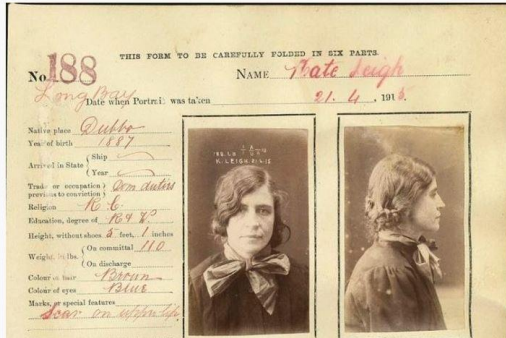 THIS FORM TO BE CAREFULLY FOLDED IN SIX PARTS.
No. 188
NAME Kate Leigh
Long Bay
Date when Portrait was taken 21. 4. 1915.
Native place Dubbo
Year of birth 1887
Arrived in State { Ship
{ Year
Trade or occupation } Dom duties
previous to conviction }
Religion R. C.
Education, degree of R & W
Height, without shoes 5 feet, 1 inches
Weight, in lbs. { On committal 110
{ On discharge
Colour of hair Brown
Colour of eyes Blue
Marks, or special features
Scar on upper lip
K. LEIGH 21.4.15